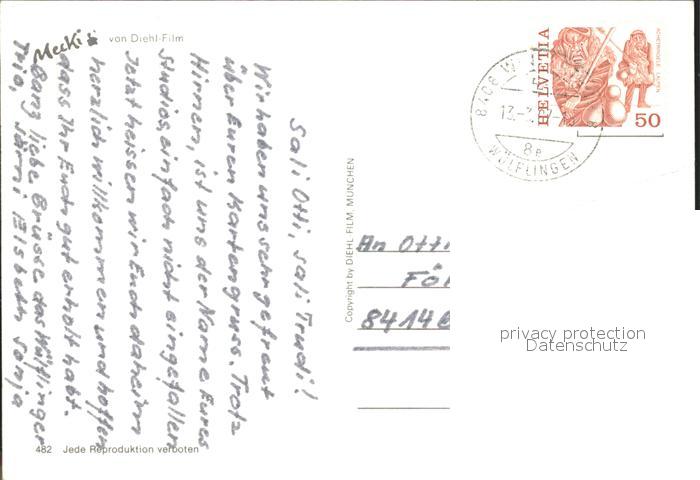 Mecki
von Diehl-Film
Sali Otti, sali Trudi!
Wir haben uns sehr gefreut
über Euren Kartengruss. Trotz
Hirnen, ist uns der Name Eures
Studios, einfach nicht eingefallen
Jetzt heissen wir Euch daheim
herzlich willkommen und hoffen
dass Ihr Euch gut erholt habt.
Ganz liebe Grüsse das Wülflinger
Trio, Elsbeth Sonja
482 Jede Reproduktion verboten
Copyright by DIEHL-FILM, MÜNCHEN
HELVETIA
50
8408
WÜLFLINGEN
8e
An Otti
Föl
84146
privacy protection
Datenschutz